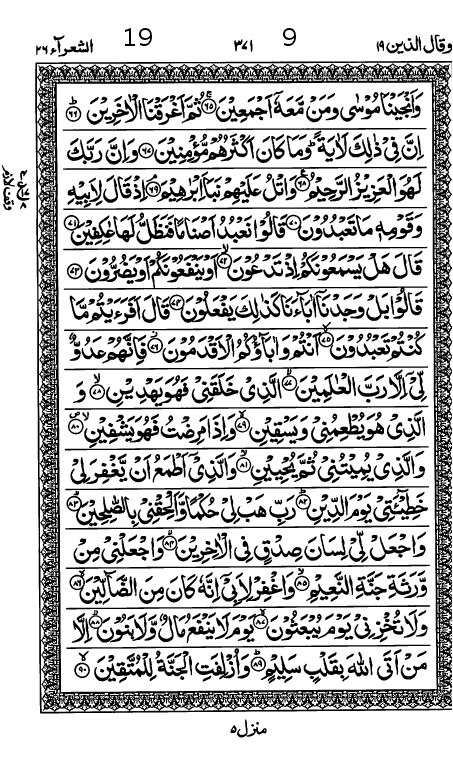 وقال الذين ١٩ 9 ٣٧١ 19 الشعرآء ٢٦
وَاَنْجَيْنَا مُوْسٰى وَمَنْ مَّعَهٗۤ اَجْمَعِيْنَ ۚ‏﴿۶۵﴾ ثُمَّ اَغْرَقْنَا الْاٰخَرِيْنَ ؕ‏﴿۶۶﴾
اِنَّ فِىْ ذٰلِكَ لَاٰيَةً ؕ وَمَا كَانَ اَكْثَرُهُمْ مُّؤْمِنِيْنَ ﴿۶۷﴾ وَاِنَّ رَبَّكَ
لَهُوَ الْعَزِيْزُ الرَّحِيْمُ ﴿۶۸﴾ وَاتْلُ عَلَيْهِمْ نَبَاَ اِبْرٰهِيْمَ ۘ ﴿۶۹﴾ اِذْ قَالَ لِاَبِيْهِ
وَقَوْمِهٖ مَا تَعْبُدُوْنَ ﴿۷۰﴾ قَالُوْا نَعْبُدُ اَصْنَامًا فَنَظَلُّ لَهَا عٰكِفِيْنَ ﴿۷۱﴾
قَالَ هَلْ يَسْمَعُوْنَكُمْ اِذْ تَدْعُوْنَ ۙ ﴿۷۲﴾ اَوْ يَنْفَعُوْنَكُمْ اَوْ يَضُرُّوْنَ ﴿۷۳﴾
قَالُوْا بَلْ وَجَدْنَاۤ اٰبَآءَنَا كَذٰلِكَ يَفْعَلُوْنَ ﴿۷۴﴾ قَالَ اَفَرَءَيْتُمْ مَّا
كُنْتُمْ تَعْبُدُوْنَ ۙ ﴿۷۵﴾ اَنْتُمْ وَاٰبَآؤُكُمُ الْاَقْدَمُوْنَ ۖ ﴿۷۶﴾ فَاِنَّهُمْ عَدُوٌّ
لِّىْۤ اِلَّا رَبَّ الْعٰلَمِيْنَ ۙ ﴿۷۷﴾ الَّذِىْ خَلَقَنِىْ فَهُوَ يَهْدِيْنِ ۙ ﴿۷۸﴾ وَ
الَّذِىْ هُوَ يُطْعِمُنِىْ وَيَسْقِيْنِ ۙ ﴿۷۹﴾ وَاِذَا مَرِضْتُ فَهُوَ يَشْفِيْنِ ۙ ﴿۸۰﴾
وَالَّذِىْ يُمِيْتُنِىْ ثُمَّ يُحْيِيْنِ ۙ ﴿۸۱﴾ وَالَّذِىْۤ اَطْمَعُ اَنْ يَّغْفِرَ لِىْ
خَطِيْٓئَتِىْ يَوْمَ الدِّيْنِ ؕ ﴿۸۲﴾ رَبِّ هَبْ لِىْ حُكْمًا وَّاَلْحِقْنِىْ بِالصّٰلِحِيْنَ ۙ ﴿۸۳﴾
وَاجْعَلْ لِّىْ لِسَانَ صِدْقٍ فِى الْاٰخِرِيْنَ ۙ ﴿۸۴﴾ وَاجْعَلْنِىْ مِنْ
وَّرَثَةِ جَنَّةِ النَّعِيْمِ ۙ ﴿۸۵﴾ وَاغْفِرْ لِاَبِىْۤ اِنَّهٗ كَانَ مِنَ الضَّآلِّيْنَ ۙ ﴿۸۶﴾
وَلَا تُخْزِنِىْ يَوْمَ يُبْعَثُوْنَ ۙ ﴿۸۷﴾ يَوْمَ لَا يَنْفَعُ مَالٌ وَّلَا بَنُوْنَ ۙ ﴿۸۸﴾ اِلَّا
مَنْ اَتَى اللّٰهَ بِقَلْبٍ سَلِيْمٍ ؕ ﴿۸۹﴾ وَاُزْلِفَتِ الْجَنَّةُ لِلْمُتَّقِيْنَ ۙ ﴿۹۰﴾
منزل ۵